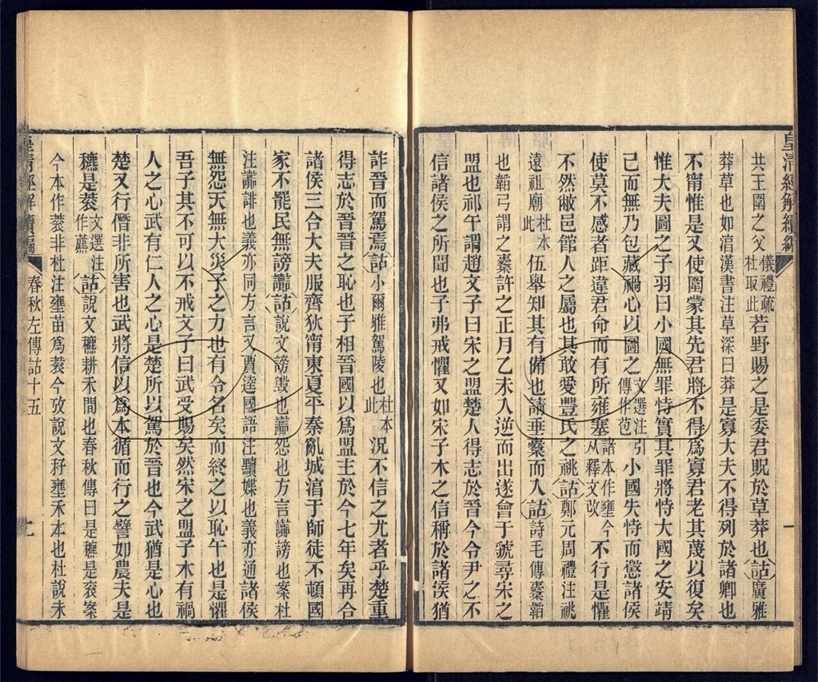 皇清經解續編
共王圍之父儀禮疏杜取此若野賜之是委君貺於草莽也詁廣雅
莽草也如淯漢書注草深曰莽是寡大夫不得列於諸卿也
不甯惟是又使圍蒙其先君將不得爲寡君老其蔑以復矣
惟大夫圖之子羽曰小國無罪恃實其罪將恃大國之安靖
己而無乃包藏禍心以圖之文選注引傳作苞小國失恃而懲諸侯
使莫不感者距違君命而有所雍塞諸本作壅今从釋文改不行是懼
不然敝邑館人之屬也其敢愛豐氏之祧詁鄭元周禮注祧
遠祖廟杜本此伍舉知其有備也請垂櫜而入詁詩毛傳櫜韜
也韜弓謂之櫜許之正月乙未入逆而出遂會于虢尋宋之
盟也祁午謂趙文子曰宋之盟楚人得志於晉今令尹之不
信諸侯之所聞也子弗戒懼又如宋子木之信稱於諸侯猶
詐晉而駕焉詁小爾雅駕陵也杜本此況不信之尤者乎楚重
得志於晉晉之恥也子相晉國以爲盟主於今七年矣再合
諸侯三合大夫服齊狄甯東夏平秦亂城淯于師徒不頓國
家不罷民無謗讟詁說文謗毀也讟怨也方言讟謗也案杜
注讟誹也義亦同方言又賈逵國語注黷媟也義亦通諸侯
無怨天無大災子之力也有令名矣而終之以恥午也是懼
吾子其不可以不戒文子曰武受賜矣然宋之盟子木有禍
人之心武有仁人之心是楚所以駕於晉也今武猶是心也
楚又行僭非所害也武將信以爲本循而行之譬如農夫是
穮是蔉文選注作藨詁說文穮耕禾閒也春秋傳曰是穮是衮案
今本作蔉非杜注壅苗爲蔉今攷說文秄壅禾本也杜說未
春秋左傳詁十五